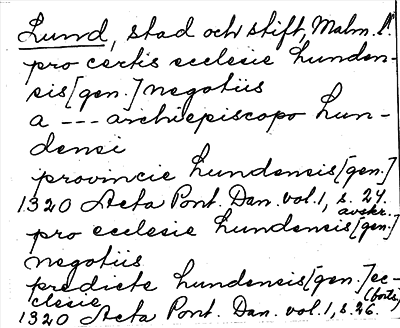 Lund, stad och stift, Malm. l.
pro certis ecclesie Lunden-
sis [gen.] negotiis
a --- archiepiscopo Lun-
densi
provincie Lundensis [gen.]
1320 Acta Pont. Dan. vol. 1, s. 24.
avskr.
pro ecclesie Lundensis [gen.]
negotiis
predicte Lundensis [gen.] ec-
clesie (forts.)
1320 Acta Pont. Dan. vol. 1, s. 26.